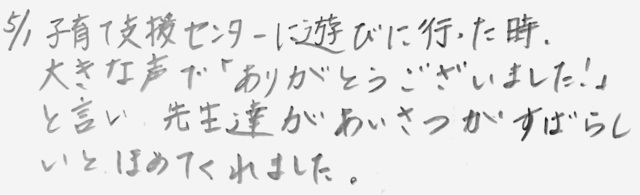 5/1 子育て支援センターに遊びに行った時、
大きな声で「ありがとうございました！」
と言い 先生達があいさつがすばらし
いと ほめてくれました。